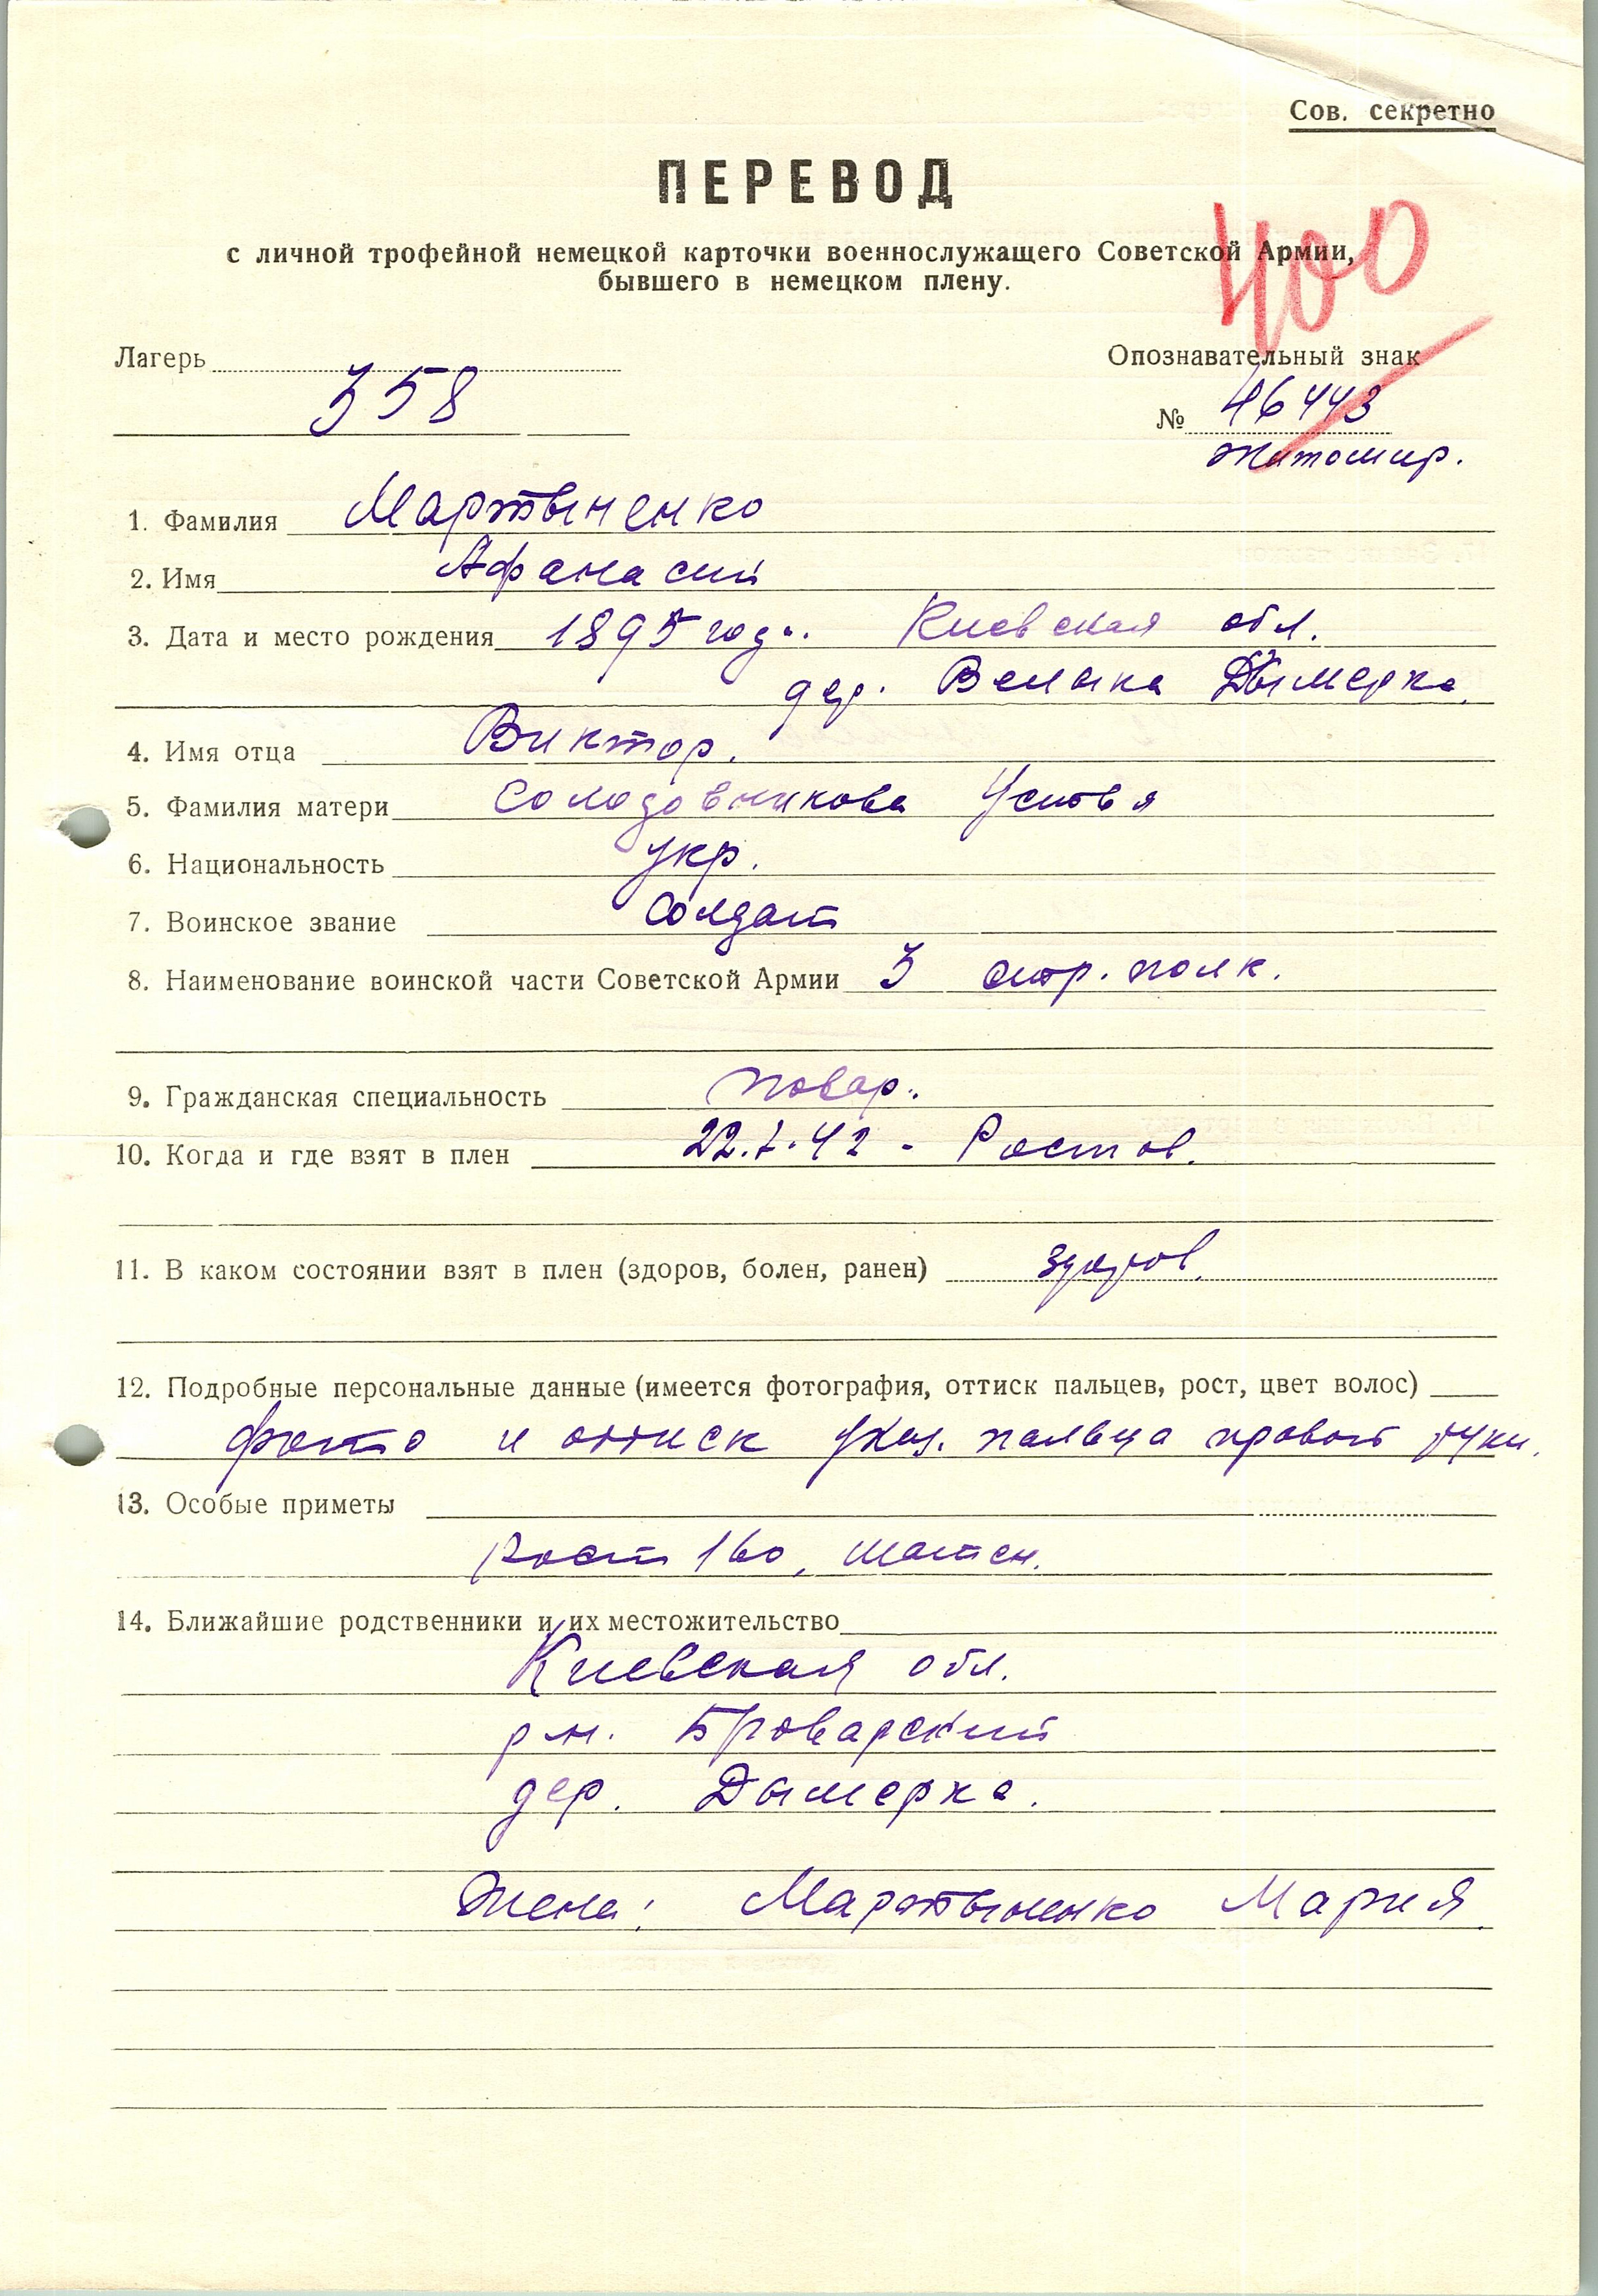 Сов. секретно
ПЕРЕВОД
с личной трофейной немецкой карточки военнослужащего Советской Армии,
бывшего в немецком плену.
400
Лагерь 358
Опознавательный знак
№ 46443
Житомир.
1. Фамилия Мартыненко
2. Имя Афанасий
3. Дата и место рождения 1895 год. Киевская обл.
дер. Велика Дымерка.
4. Имя отца Виктор.
5. Фамилия матери Солодовникова Устья
6. Национальность укр.
7. Воинское звание солдат
8. Наименование воинской части Советской Армии 3 стр. полк.
9. Гражданская специальность повар.
10. Когда и где взят в плен 22.7.42 - Ростов.
11. В каком состоянии взят в плен (здоров, болен, ранен) здоров.
12. Подробные персональные данные (имеется фотография, оттиск пальцев, рост, цвет волос)
фото и оттиск указ. пальца правой руки.
13. Особые приметы
рост 160, шатен.
14. Ближайшие родственники и их местожительство
Киевская обл.
р-н. Броварский
дер. Дымерка.
Жена: Мартыненко Мария.